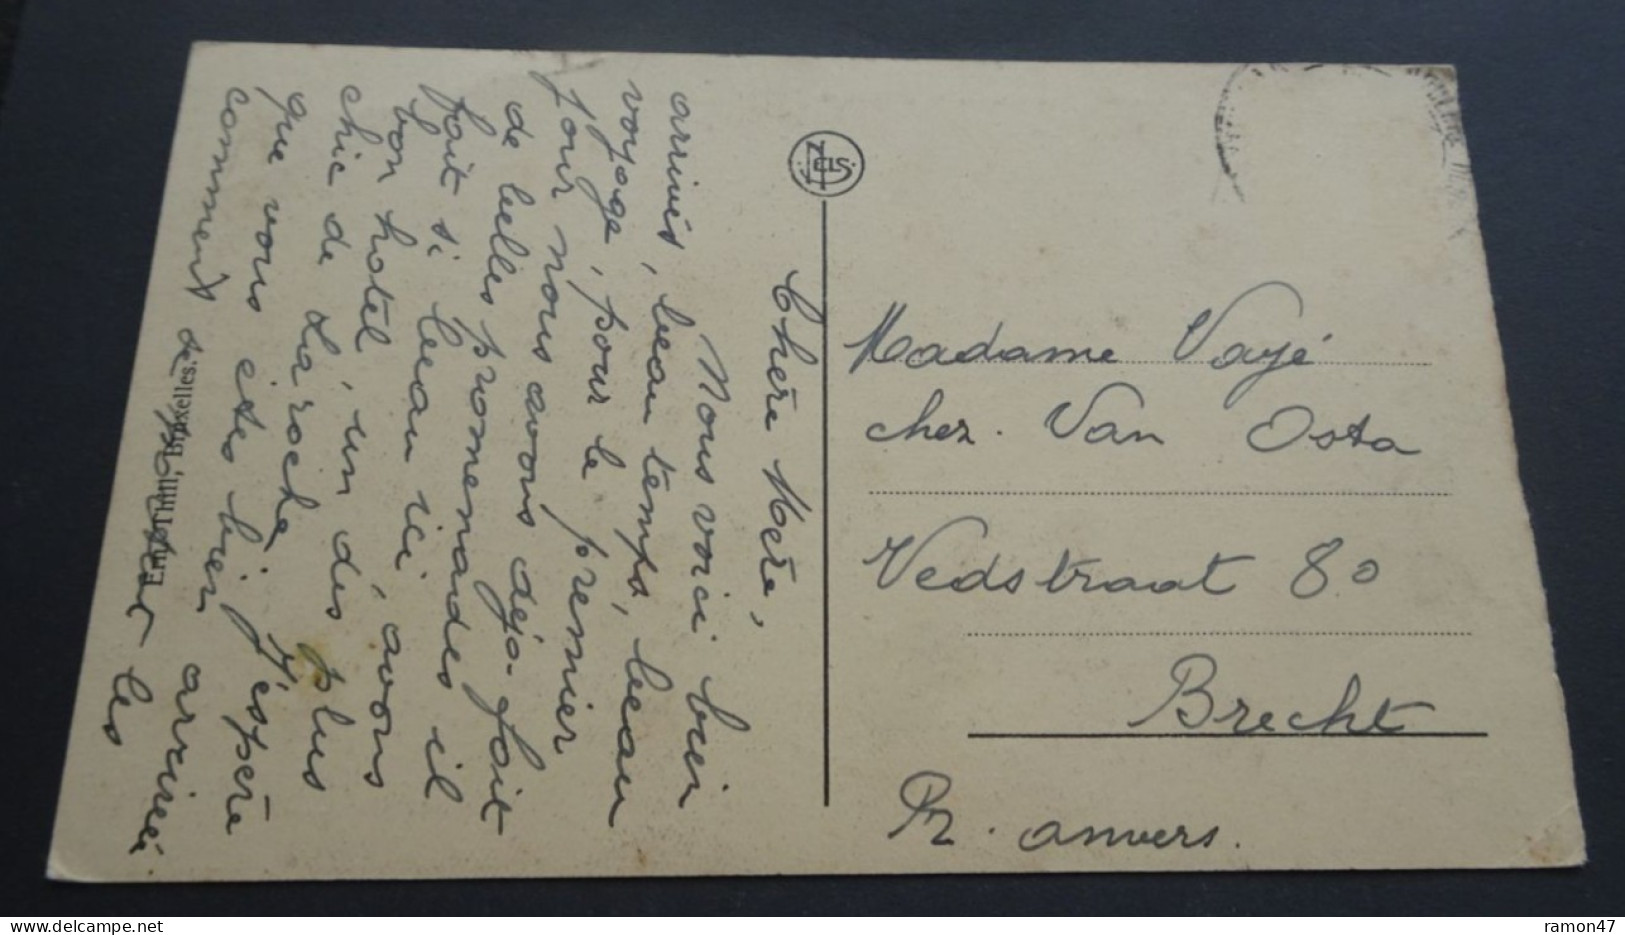 Chère Mère,
Nous voici bien
arrivés, beau temps, beau
voyage, pour le premier
jour nous avons déja fait
de belles promenades il
fait si beau ici, avons
bon hotel, un des plus
chic de Laroche J'espère
que vous êtes bien arrivée
comment se les
Ern. Thill, Bruxelles.
NELS
Madame Vayé
chez. Van Osta
Vedstraat 80
Brecht
Pr. anvers.
ramon47